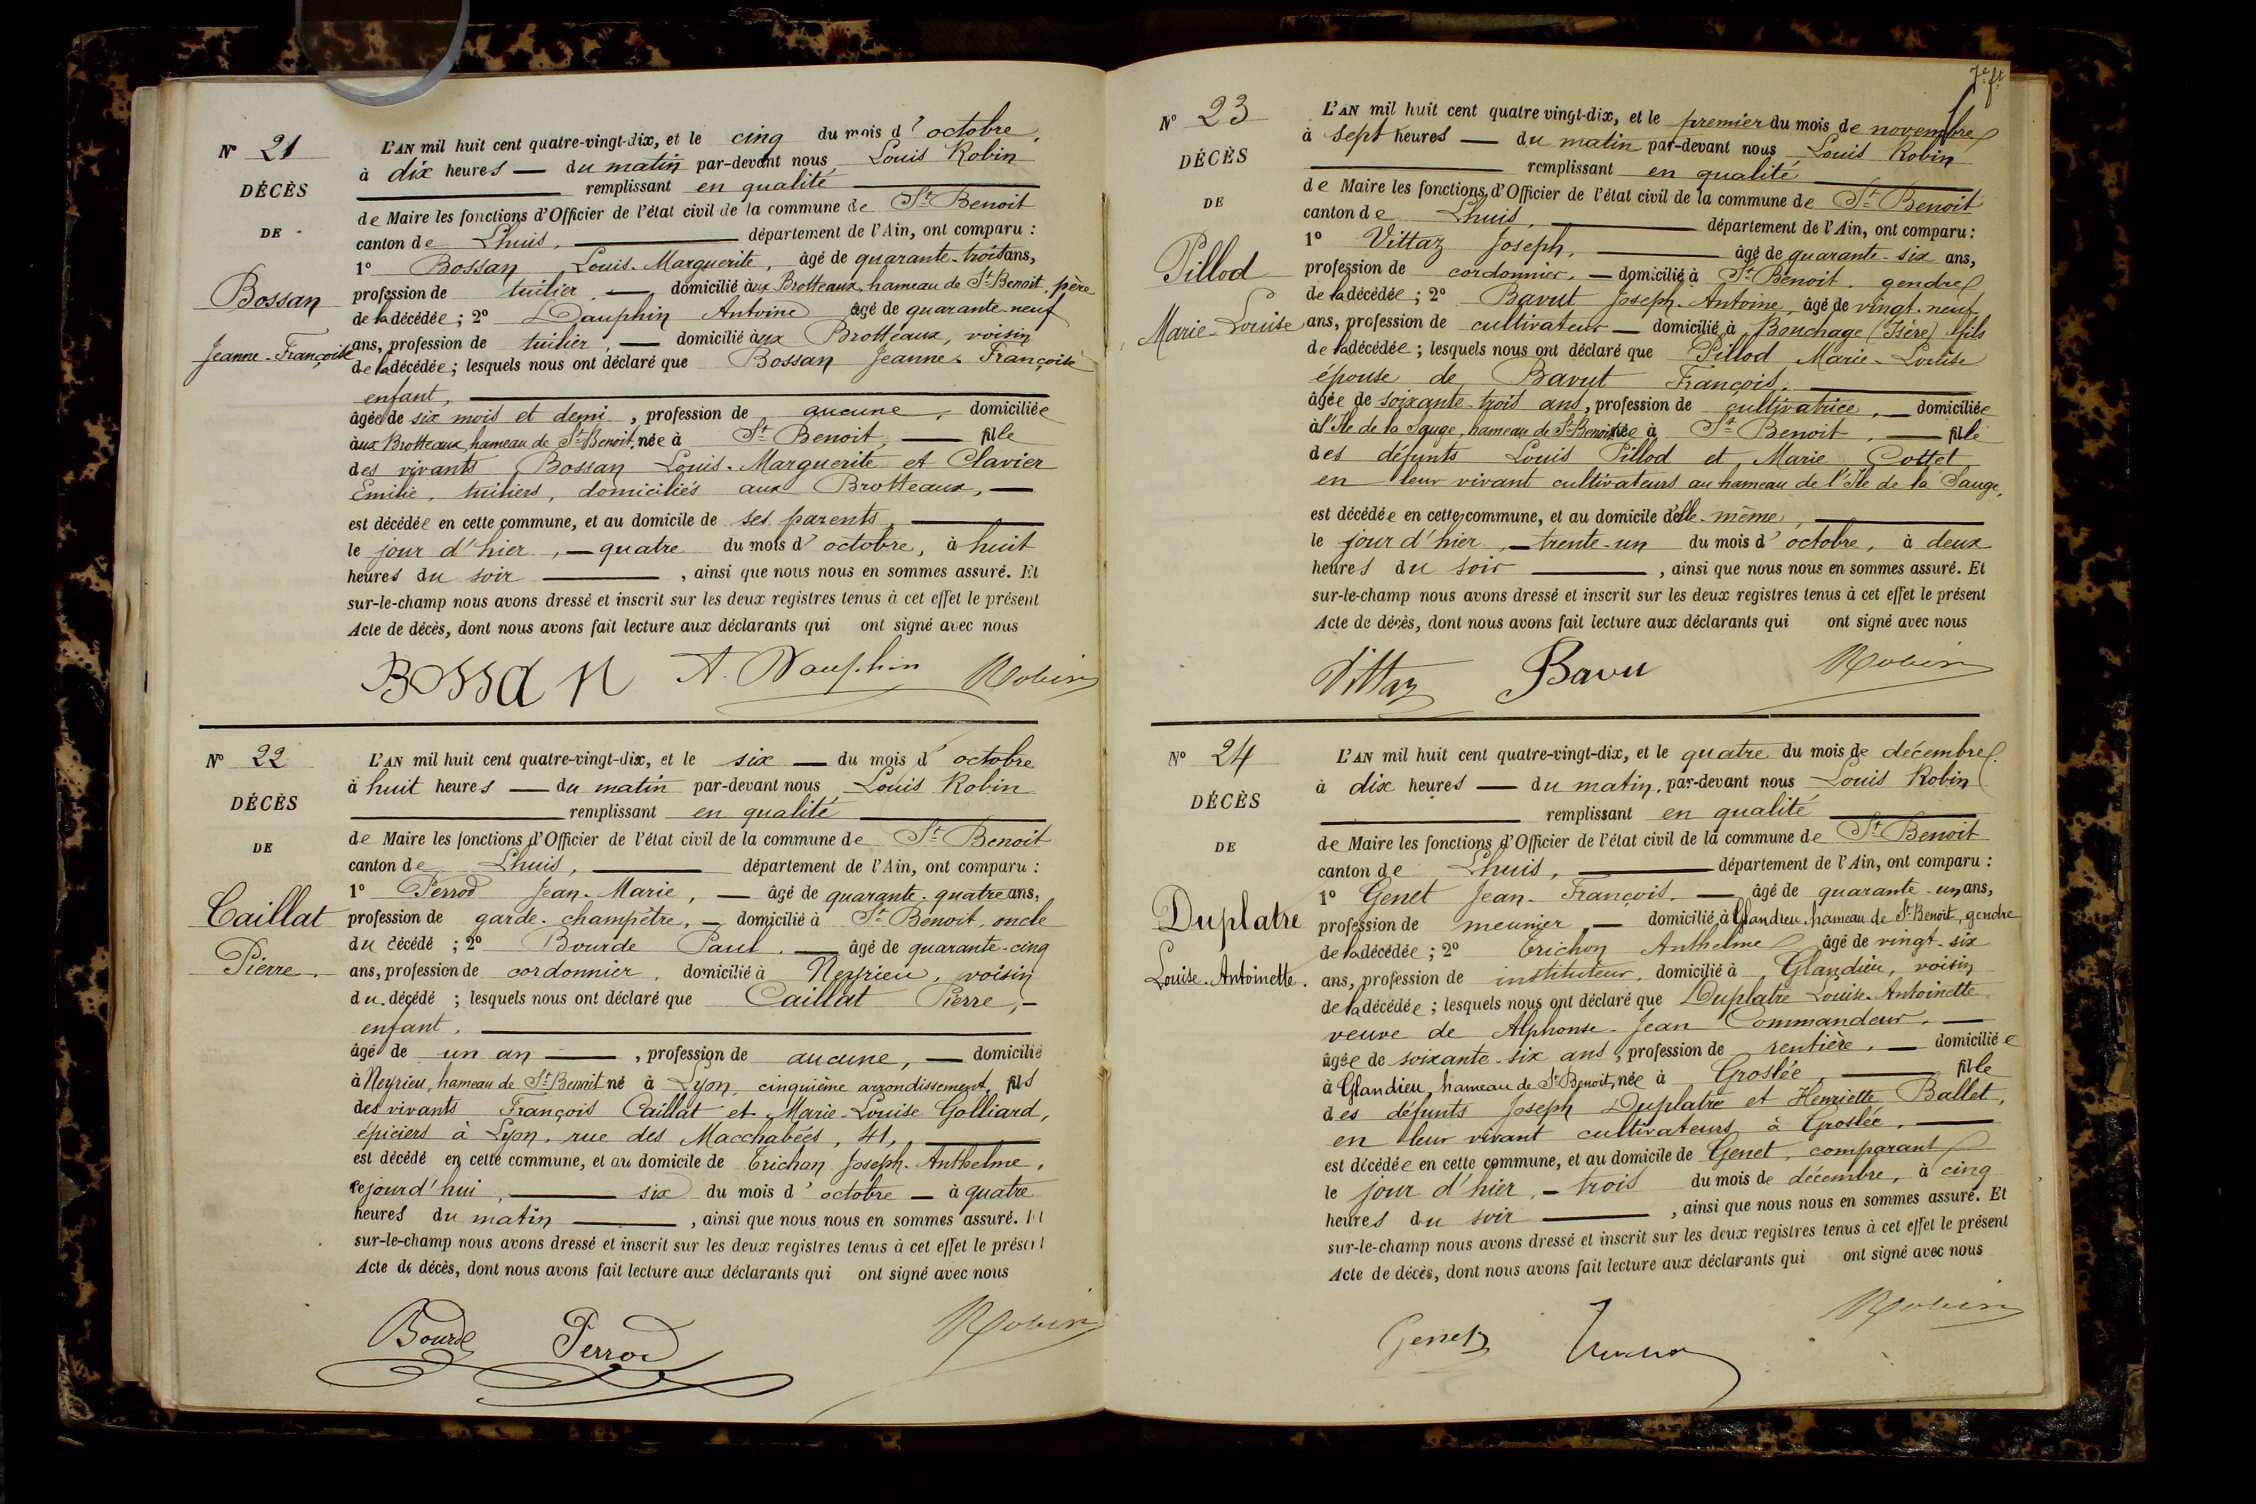 N° 21
DÉCÈS
DE
Bossan
Jeanne-Françoise
L'AN mil huit cent quatre-vingt-dix, et le cinq du mois d'octobre,
à dix heures — du matin par-devant nous Louis Robin
remplissant en qualité
de Maire les fonctions d'Officier de l'état civil de la commune de St Benoit
canton de Lhuis, département de l'Ain, ont comparu :
1° Bossan Louis-Marguerite, âgé de quarante-trois ans,
profession de tuilier, — domicilié aux Brotteaux, hameau de St Benoit, père
de la décédée ; 2° Dauphin Antoine âgé de quarante-neuf
ans, profession de tuilier, — domicilié aux Brotteaux, voisin
de la décédée ; lesquels nous ont déclaré que Bossan Jeanne-Françoise
enfant,
âgée de six mois et demi, profession de aucune, domiciliée
aux Brotteaux, hameau de St Benoit, née à St Benoit, — fille
des vivants Bossan Louis-Marguerite et Clavier
Emilie, tuiliers, domiciliés aux Brotteaux, —
est décédée en cette commune, et au domicile de ses parents,
le jour d'hier, — quatre du mois d'octobre, à huit
heures du soir — , ainsi que nous nous en sommes assuré. Et
sur-le-champ nous avons dressé et inscrit sur les deux registres tenus à cet effet le présent
Acte de décès, dont nous avons fait lecture aux déclarants qui ont signé avec nous
Bossan A. Dauphin Robin
N° 22
DÉCÈS
DE
Caillat
Pierre.
L'AN mil huit cent quatre-vingt-dix, et le six — du mois d'octobre
à huit heures — du matin par-devant nous Louis Robin
remplissant en qualité
de Maire les fonctions d'Officier de l'état civil de la commune de St Benoit
canton de Lhuis, département de l'Ain, ont comparu :
1° Perrod Jean-Marie, — âgé de quarante-quatre ans,
profession de garde-champêtre, — domicilié à St Benoit, oncle
du décédé ; 2° Bourde Paul, — âgé de quarante-cinq
ans, profession de cordonnier, domicilié à Neyrieu, voisin
du décédé ; lesquels nous ont déclaré que Caillat Pierre, —
enfant,
âgé de un an — , profession de aucune, — domicilié
à Neyrieu, hameau de St Benoit né à Lyon, cinquième arrondissement, fils
des vivants François Caillat et Marie-Louise Golliard,
épiciers à Lyon, rue des Macchabées, 41,
est décédé en cette commune, et au domicile de Trichon Joseph-Anthelme,
cejourd'hui, — six du mois d'octobre — à quatre
heures du matin — , ainsi que nous nous en sommes assuré. Et
sur-le-champ nous avons dressé et inscrit sur les deux registres tenus à cet effet le présent
Acte de décès, dont nous avons fait lecture aux déclarants qui ont signé avec nous
Bourde Perrod Robin
7e ft
N° 23
DÉCÈS
DE
Pillod
Marie-Louise
L'AN mil huit cent quatre vingt-dix, et le premier du mois de novembre
à sept heures — du matin par-devant nous Louis Robin
remplissant en qualité
de Maire les fonctions d'Officier de l'état civil de la commune de St Benoit
canton de Lhuis, département de l'Ain, ont comparu :
1° Vittaz Joseph, — âgé de quarante-six ans,
profession de cordonnier, — domicilié à St Benoit, gendre
de la décédée ; 2° Bavut Joseph-Antoine, âgé de vingt-neuf
ans, profession de cultivateur — domicilié à Bouchage (Isère) fils
de la décédée ; lesquels nous ont déclaré que Pillod Marie-Louise
épouse de Bavut François,
âgée de soixante-trois ans, profession de cultivatrice, — domiciliée
à l'Ile de la Sauge, hameau de St Benoit née à St Benoit, — fille
des défunts Louis Pillod et Marie Cottet
en leur vivant cultivateurs au hameau de l'Ile de la Sauge,
est décédée en cette commune, et au domicile d'elle-même,
le jour d'hier, — trente-un du mois d'octobre, à deux
heures du soir — , ainsi que nous nous en sommes assuré. Et
sur-le-champ nous avons dressé et inscrit sur les deux registres tenus à cet effet le présent
Acte de décès, dont nous avons fait lecture aux déclarants qui ont signé avec nous
Vittaz Bavu Robin
N° 24
DÉCÈS
DE
Duplatre
Louise-Antoinette.
L'AN mil huit cent quatre-vingt-dix, et le quatre du mois de décembre
à dix heures — du matin, par-devant nous Louis Robin
remplissant en qualité
de Maire les fonctions d'Officier de l'état civil de la commune de St Benoit
canton de Lhuis, département de l'Ain, ont comparu :
1° Genet Jean-François, — âgé de quarante-un ans,
profession de meunier, — domicilié à Glandieu, hameau de St Benoit, gendre
de la décédée ; 2° Trichon Anthelme âgé de vingt-six
ans, profession de instituteur, domicilié à Glandieu, voisin
de la décédée ; lesquels nous ont déclaré que Duplatre Louise-Antoinette
veuve de Alphonse-Jean Commandeur, —
âgée de soixante-six ans, profession de rentière, — domiciliée
à Glandieu, hameau de St Benoit, née à Groslée, — fille
des défunts Joseph Duplatre et Henriette Ballet,
en leur vivant cultivateurs à Groslée, —
est décédée en cette commune, et au domicile de Genet, comparant
le jour d'hier, — trois du mois de décembre, à cinq
heures du soir — , ainsi que nous nous en sommes assuré. Et
sur-le-champ nous avons dressé et inscrit sur les deux registres tenus à cet effet le présent
Acte de décès, dont nous avons fait lecture aux déclarants qui ont signé avec nous
Genet Robin